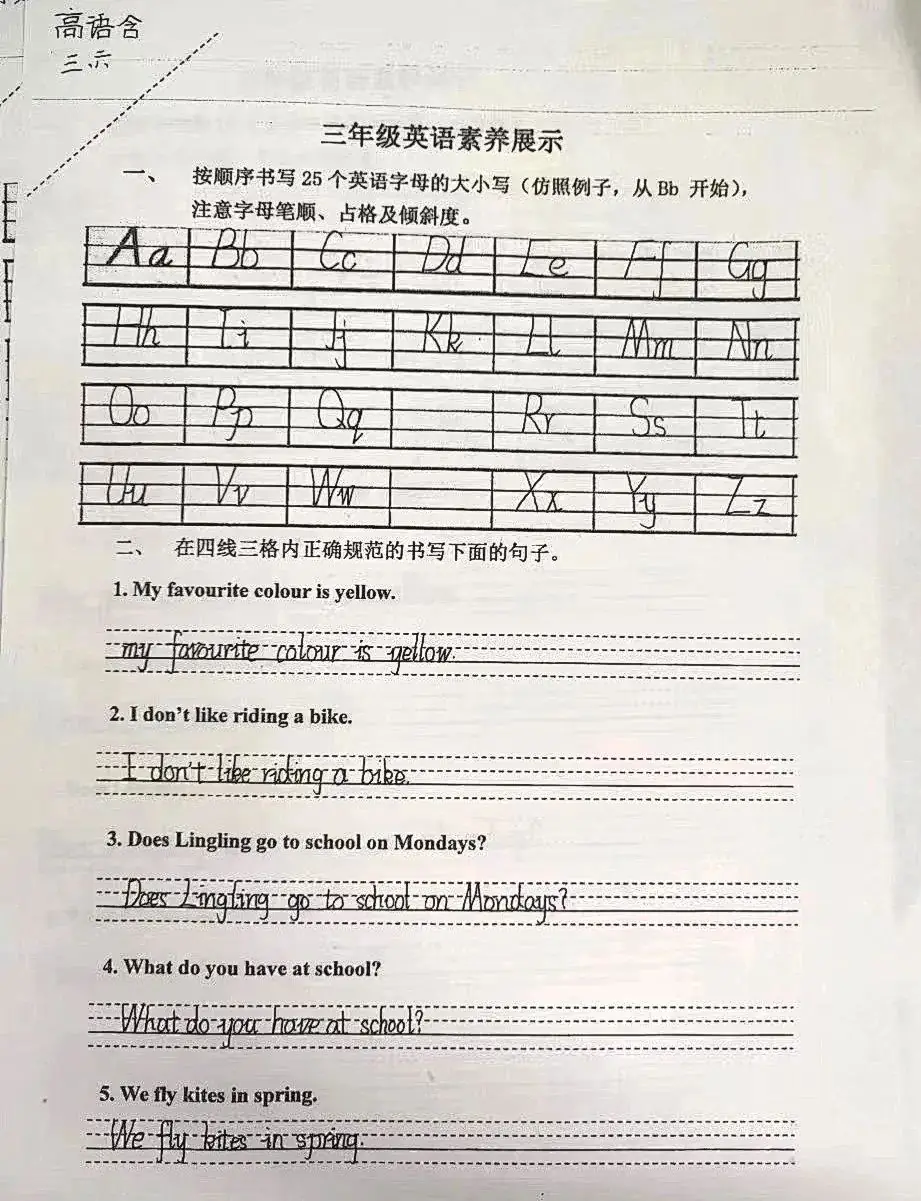 高语含
三示
三年级英语素养展示
一、 按顺序书写 25 个英语字母的大小写（仿照例子，从 Bb 开始），
注意字母笔顺、占格及倾斜度。
Aa Bb Cc Dd Ee Ff Gg
Hh Ii Jj Kk Ll Mm Nn
Oo Pp Qq Rr Ss Tt
Uu Vv Ww Xx Yy Zz
二、 在四线三格内正确规范的书写下面的句子。
1. My favourite colour is yellow.
my favourite colour is yellow.
2. I don't like riding a bike.
I don't like riding a bike.
3. Does Lingling go to school on Mondays?
Does Lingling go to school on Mondays?
4. What do you have at school?
What do you have at school?
5. We fly kites in spring.
We fly kites in spring.